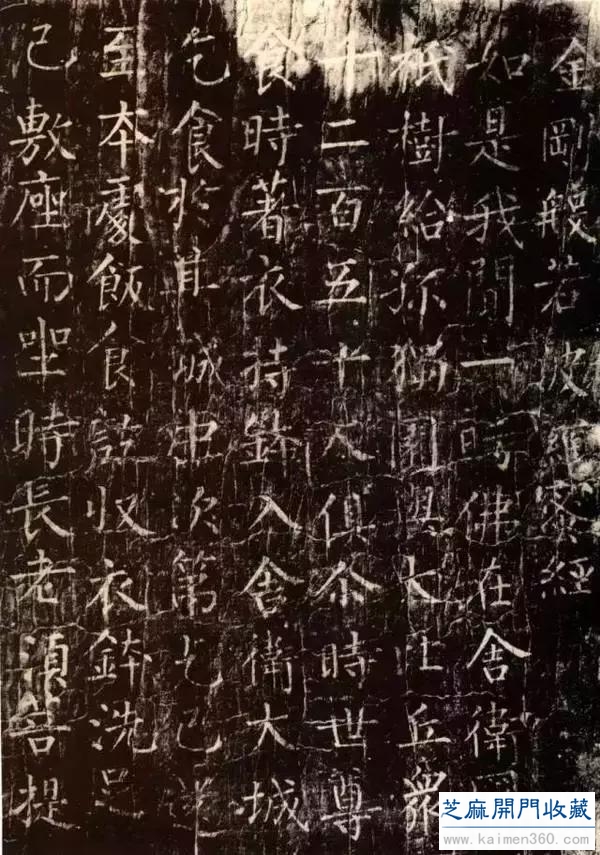 金剛般若波羅蜜經
如是我聞一時佛在舍衛國
祇樹給孤獨園與大比丘衆
千二百五十人俱尒時世尊
食時著衣持鉢入舍衛大城
乞食於其城中次第乞已還
至本處飯食訖収衣鉢洗足
已敷座而坐時長老須菩提
芝麻開門收藏
www.kaimen360.com